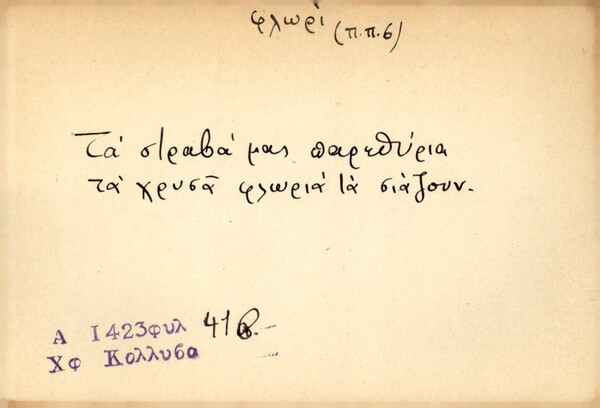 φλωρί (π.π.6)
Τά στραβά μας παρεθύρια
τά χρυσᾶ φλωριά τά σιάζουν.
Α 1423φυλ 41β.-
Χφ Κολλυβα